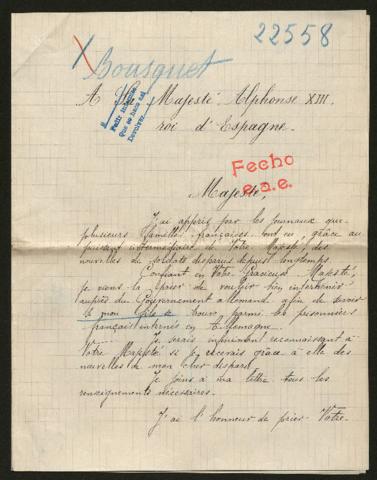 22558
X Bousquet
A Sa Majesté Alphonse XIII
roi d'Espagne.
Fecho
e.a.e.
Majesté,
J'ai appris par les journaux que
plusieurs familles françaises ont eu, grâce au
puissant intermédiaire de Votre Majesté, des
nouvelles de soldats disparus depuis longtemps.
Confiant en Votre Gracieuse Majesté,
je viens la prier de vouloir bien intervenir
auprès du Gouvernement allemand afin de savoir
si mon fils se trouve parmi les prisonniers
français internés en Allemagne.
Je serais infiniment reconnaissant à
Votre Majesté si je recevais grâce à elle des
nouvelles de mon cher disparu.
Je joins à ma lettre tous les
renseignements nécessaires.
J'ai l'honneur de prier Votre